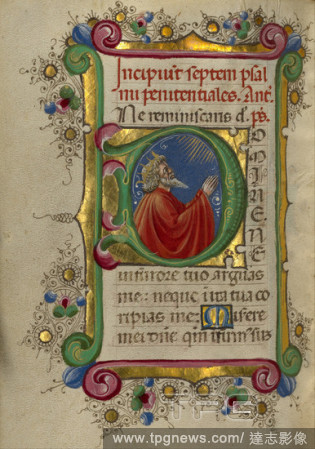 Incipiut septem psal
mi penitentiales. Ant.
Ne reminiscaris d. ps.
D
O
M
I
N
E
N
E
in furore tuo arguas
me: neque in ira tua co
ripias me: Misere
mei dne qm infirm sus
www.tpgnews.com/ 達志影像